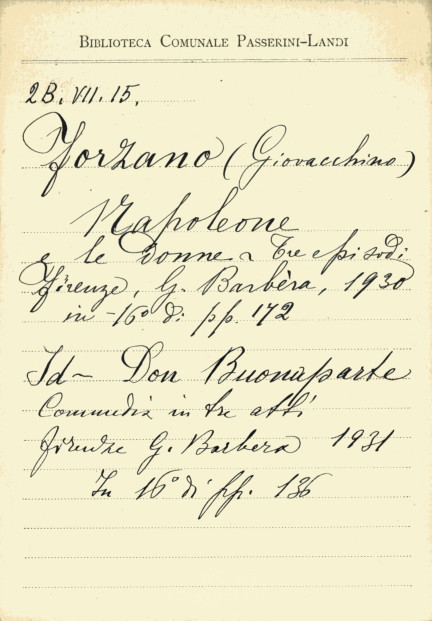 BIBLIOTECA COMUNALE PASSERINI-LANDI
2B. VII. 15.
Forzano (Giovacchino)
Napoleone
e le Donne ~ Tre episodi
Firenze, G. Barbèra, 1930
in -16° di pp. 172
Id ~ Don Buonaparte
Commedia in tre atti
Firenze G. Barbera 1931
In 16° di pp. 136